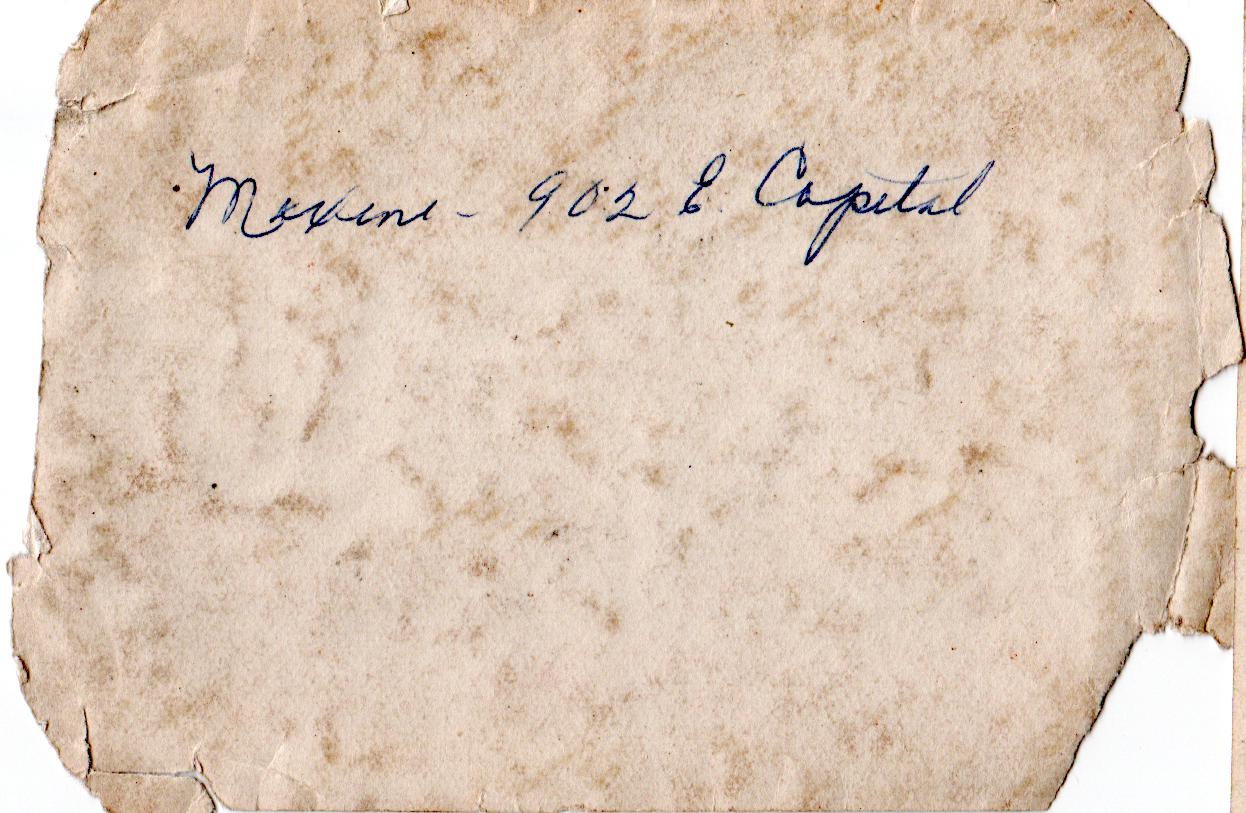 Maxine - 902 E. Capital